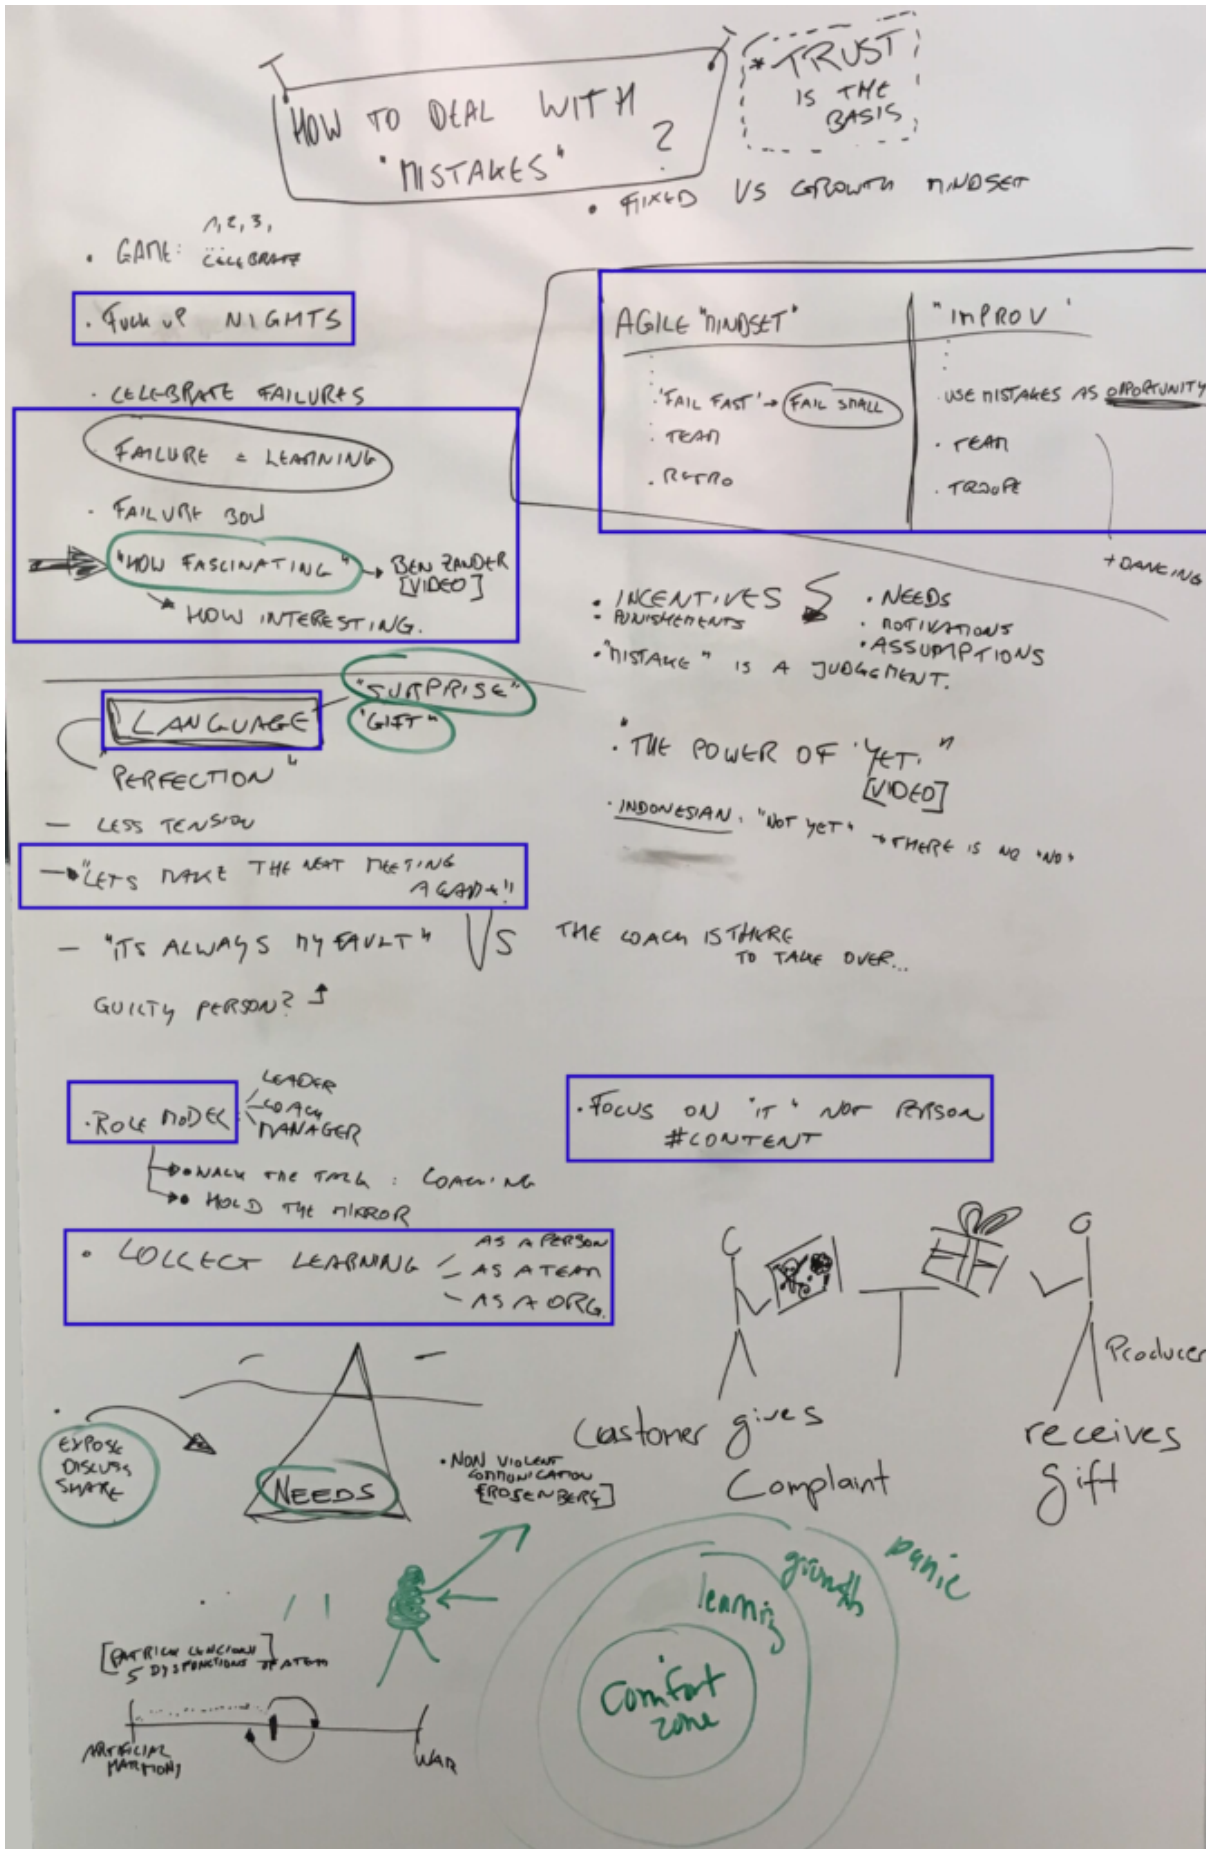 HOW TO DEAL WITH
"MISTAKES" ?
* TRUST
IS THE
BASIS
• FIXED VS GROWTH MINDSET
• GAME: 1, 2, 3,
CELEBRATE
• FUCK UP NIGHTS
• CELEBRATE FAILURES
FAILURE = LEARNING
• FAILURE BOW
"HOW FASCINATING" → BEN ZANDER
[VIDEO]
→ HOW INTERESTING.
AGILE "MINDSET"
'FAIL FAST' → FAIL SMALL
• TEAM
• RETRO
"IMPROV"
• USE MISTAKES AS OPPORTUNITY
• TEAM
• TROUPE
+ DANCING
• INCENTIVES
• PUNISHEMENTS
• NEEDS
• MOTIVATIONS
• ASSUMPTIONS
• "MISTAKE" IS A JUDGEMENT.
LANGUAGE
"SURPRISE"
"GIFT"
"PERFECTION"
• "THE POWER OF 'YET'."
[VIDEO]
• INDONESIAN: "NOT YET" → THERE IS NO "NO"
— LESS TENSION
—• "LETS MAKE THE NEXT MEETING
AGAIN!"
— "ITS ALWAYS MY FAULT" VS THE COACH IS THERE
TO TAKE OVER...
GUILTY PERSON?
• ROLE MODEL:
LEADER
COACH
MANAGER
→• WALK THE TALK: COACHING
→• HOLD THE MIRROR
• FOCUS ON "IT" NOT PERSON
#CONTENT
• COLLECT LEARNING
AS A PERSON
AS A TEAM
AS A ORG.
EXPOSE
DISCUSS
SHARE
NEEDS
• NON VIOLENT
COMMUNICATION
[ROSENBERG]
Customer gives
Complaint
Producer
receives
gift
[PATRICK LENCIONI]
5 DYSFUNCTIONS OF A TEAM
ARTIFICIAL
HARMONY
WAR
Comfort
zone
learning
growth
panic